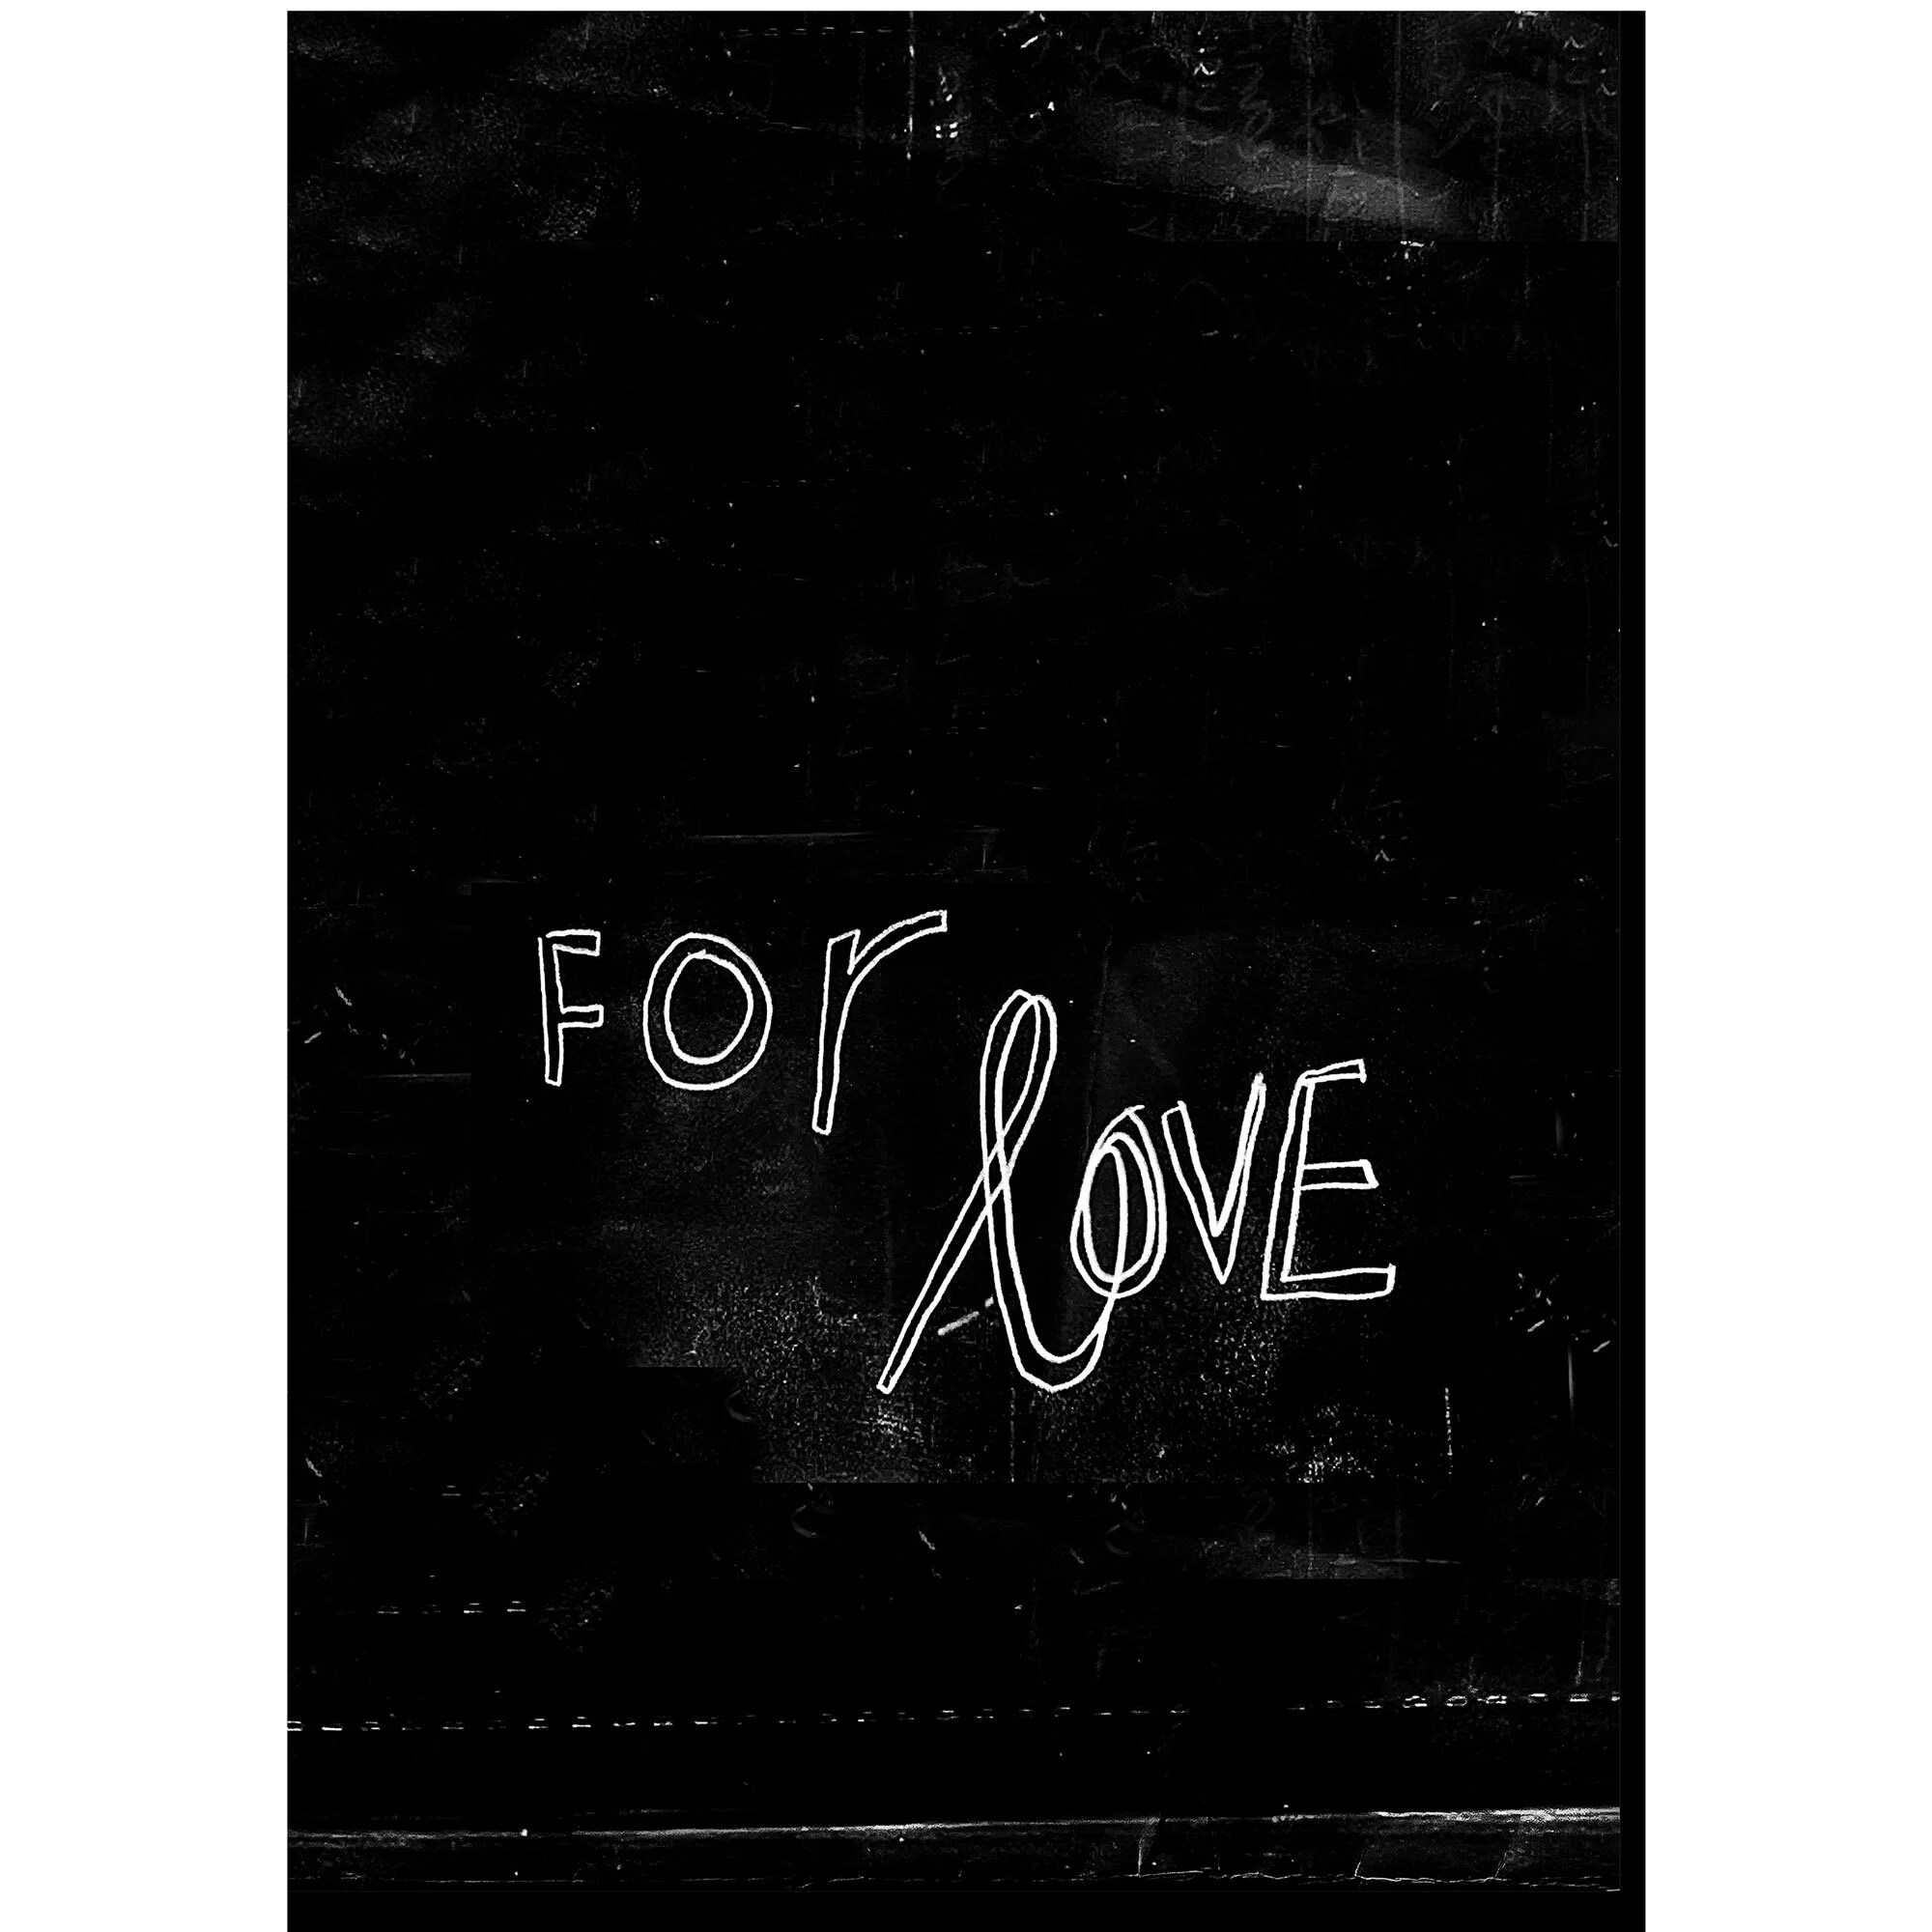 FOr
lOVE